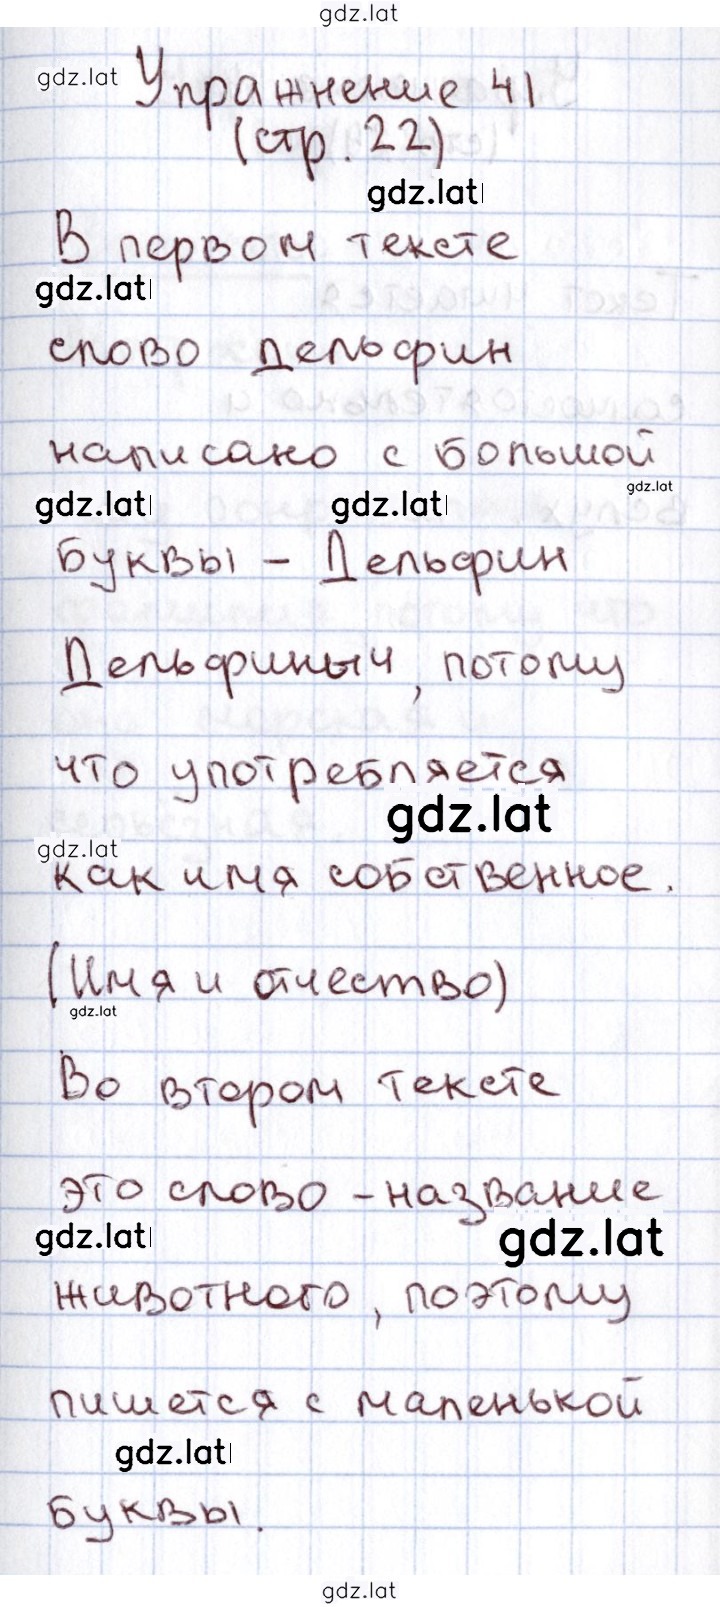 gdz.lat
gdz.lat
Упражнение 41
(стр. 22)
gdz.lat
В первом тексте
gdz.lat
слово дельфин
написано с большой
gdz.lat
gdz.lat gdz.lat
буквы – Дельфин
Дельфиныч, потому
что употребляется
gdz.lat
gdz.lat
как имя собственное.
(Имя и отчество)
gdz.lat
Во втором тексте
это слово – название
gdz.lat gdz.lat
животного, поэтому
пишется с маленькой
gdz.lat
буквы.
gdz.lat